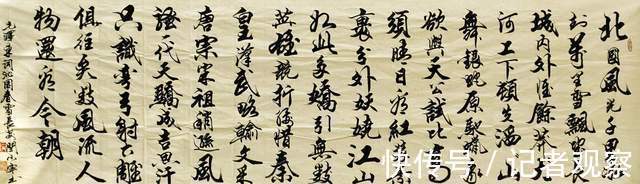 北國風光千里冰
封萬里雪飄望長
城内外惟餘莽莽大
河上下頓失滔滔山
舞銀蛇原馳蠟象
欲與天公試比高
須晴日看紅裝素
裹分外妖嬈江山
如此多嬌引無數
英雄競折腰惜秦
皇漢武略輸文采
唐宗宋祖稍遜風
騷一代天驕成吉思汗
只識彎弓射大雕
俱往矣數風流人
物還看今朝
毛澤東詞沁園春雪長安
快传号/记者观察